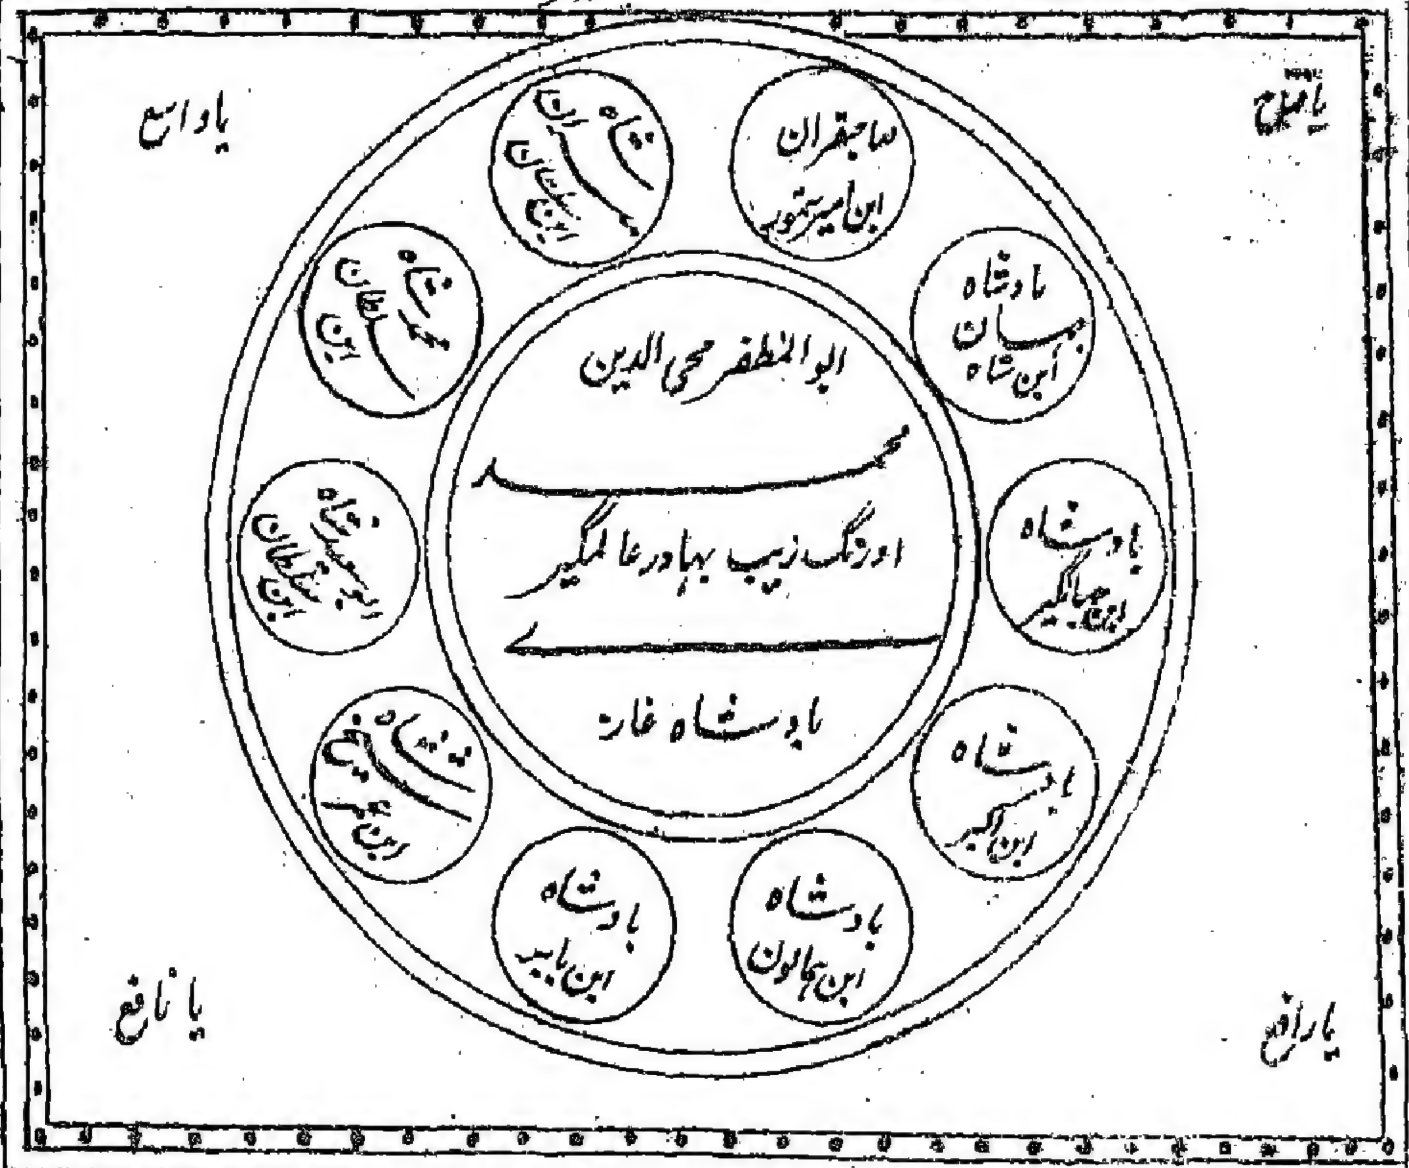 یا فتاح
یا واسع
ابوالمظفر محی الدین
محمد
اورنگ زیب بہادر عالمگیر
ے
بادشاہ غاز
صاحبقران
ابن امیر تیمور
بادشاہ
جہان
ابن شاہ
بادشاہ
ابن جہانگیر
بادشاہ
ابن اکبر
بادشاہ
ابن ہمایون
بادشاہ
ابن بابر
شاہ
شیخ
ابن عمر
شاہ
ابوسعید
ابن سلطان
شاہ
محمد
سلطان
ابن
شاہ
میران
ابن سلطان
یا رافع
یا نافع